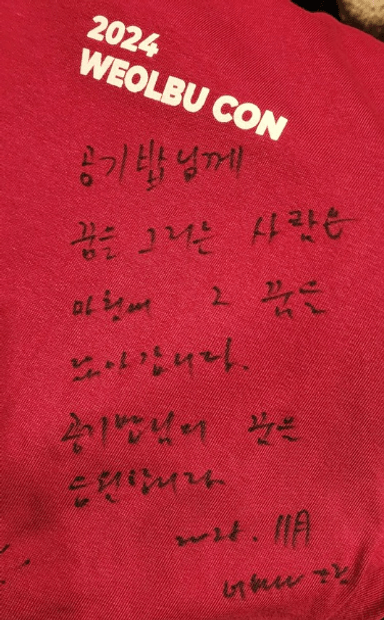 2024
WEOLBU CON
공기밥님께
꿈을 그리는 사람은
마침내 그 꿈을
닮아갑니다.
공기밥님의 꿈을
응원합니다
11月